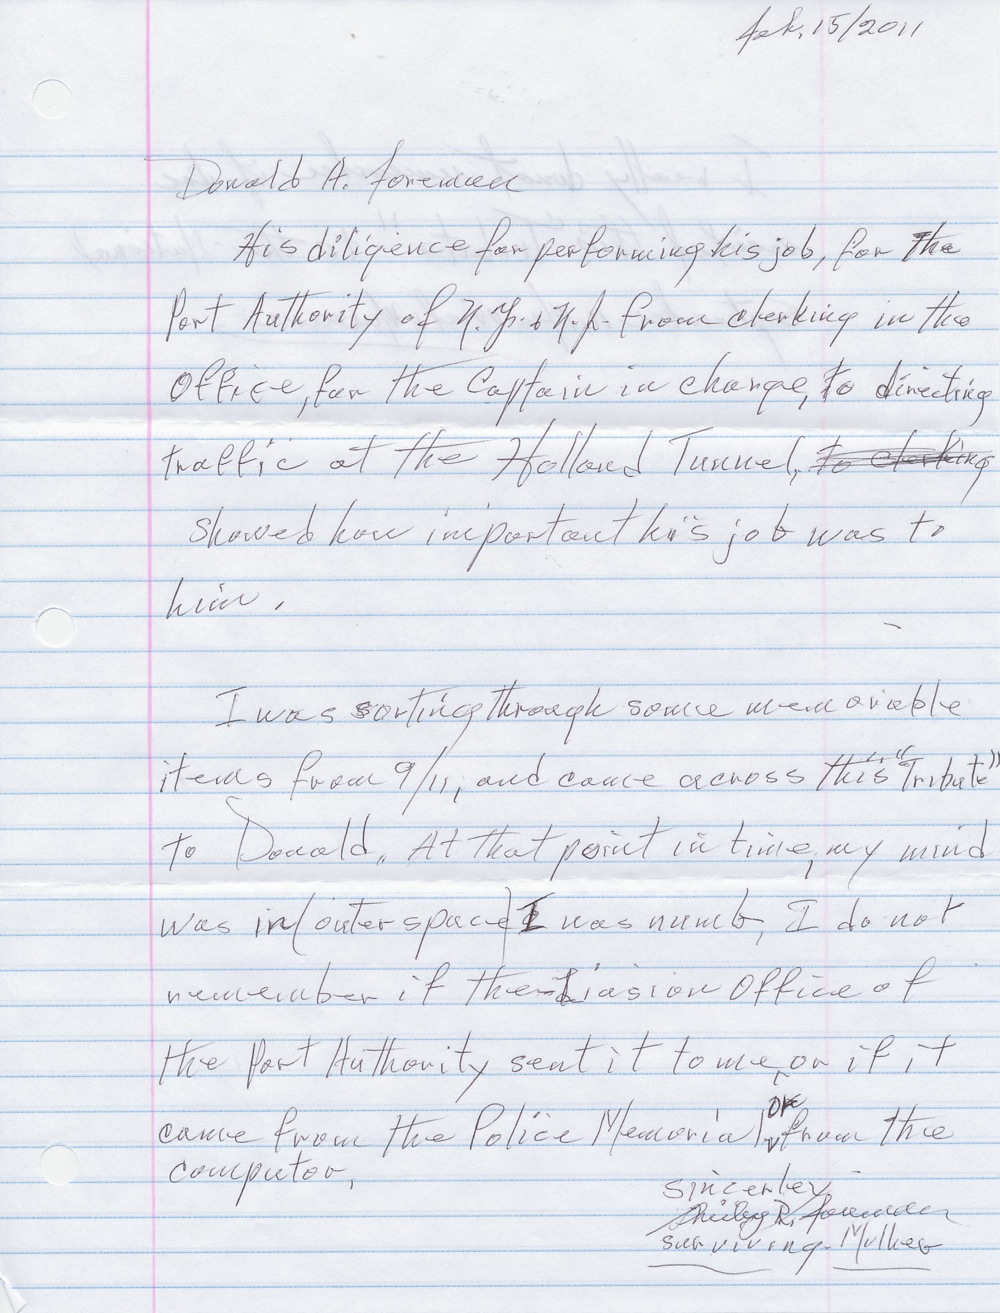 Feb. 15/2011
Donald A. Foreman
His diligence for performing his job, for the
Port Authority of N.Y. & N.J. from clerking in the
Office, for the Captain in charge, to directing
traffic at the Holland Tunnel, to clerking
showed how important his job was to
him.
I was sorting through some memoriable
items from 9/11, and came across this "Tribute"
to Donald. At that point in time, my mind
was in (outer space) I was numb, I do not
remember if the Liasion Office of
the Port Authority sent it to me, or if it
came from the Police Memorial, or from the
computor.
Sincerley
Shirley R. Foreman
surviving - Mother